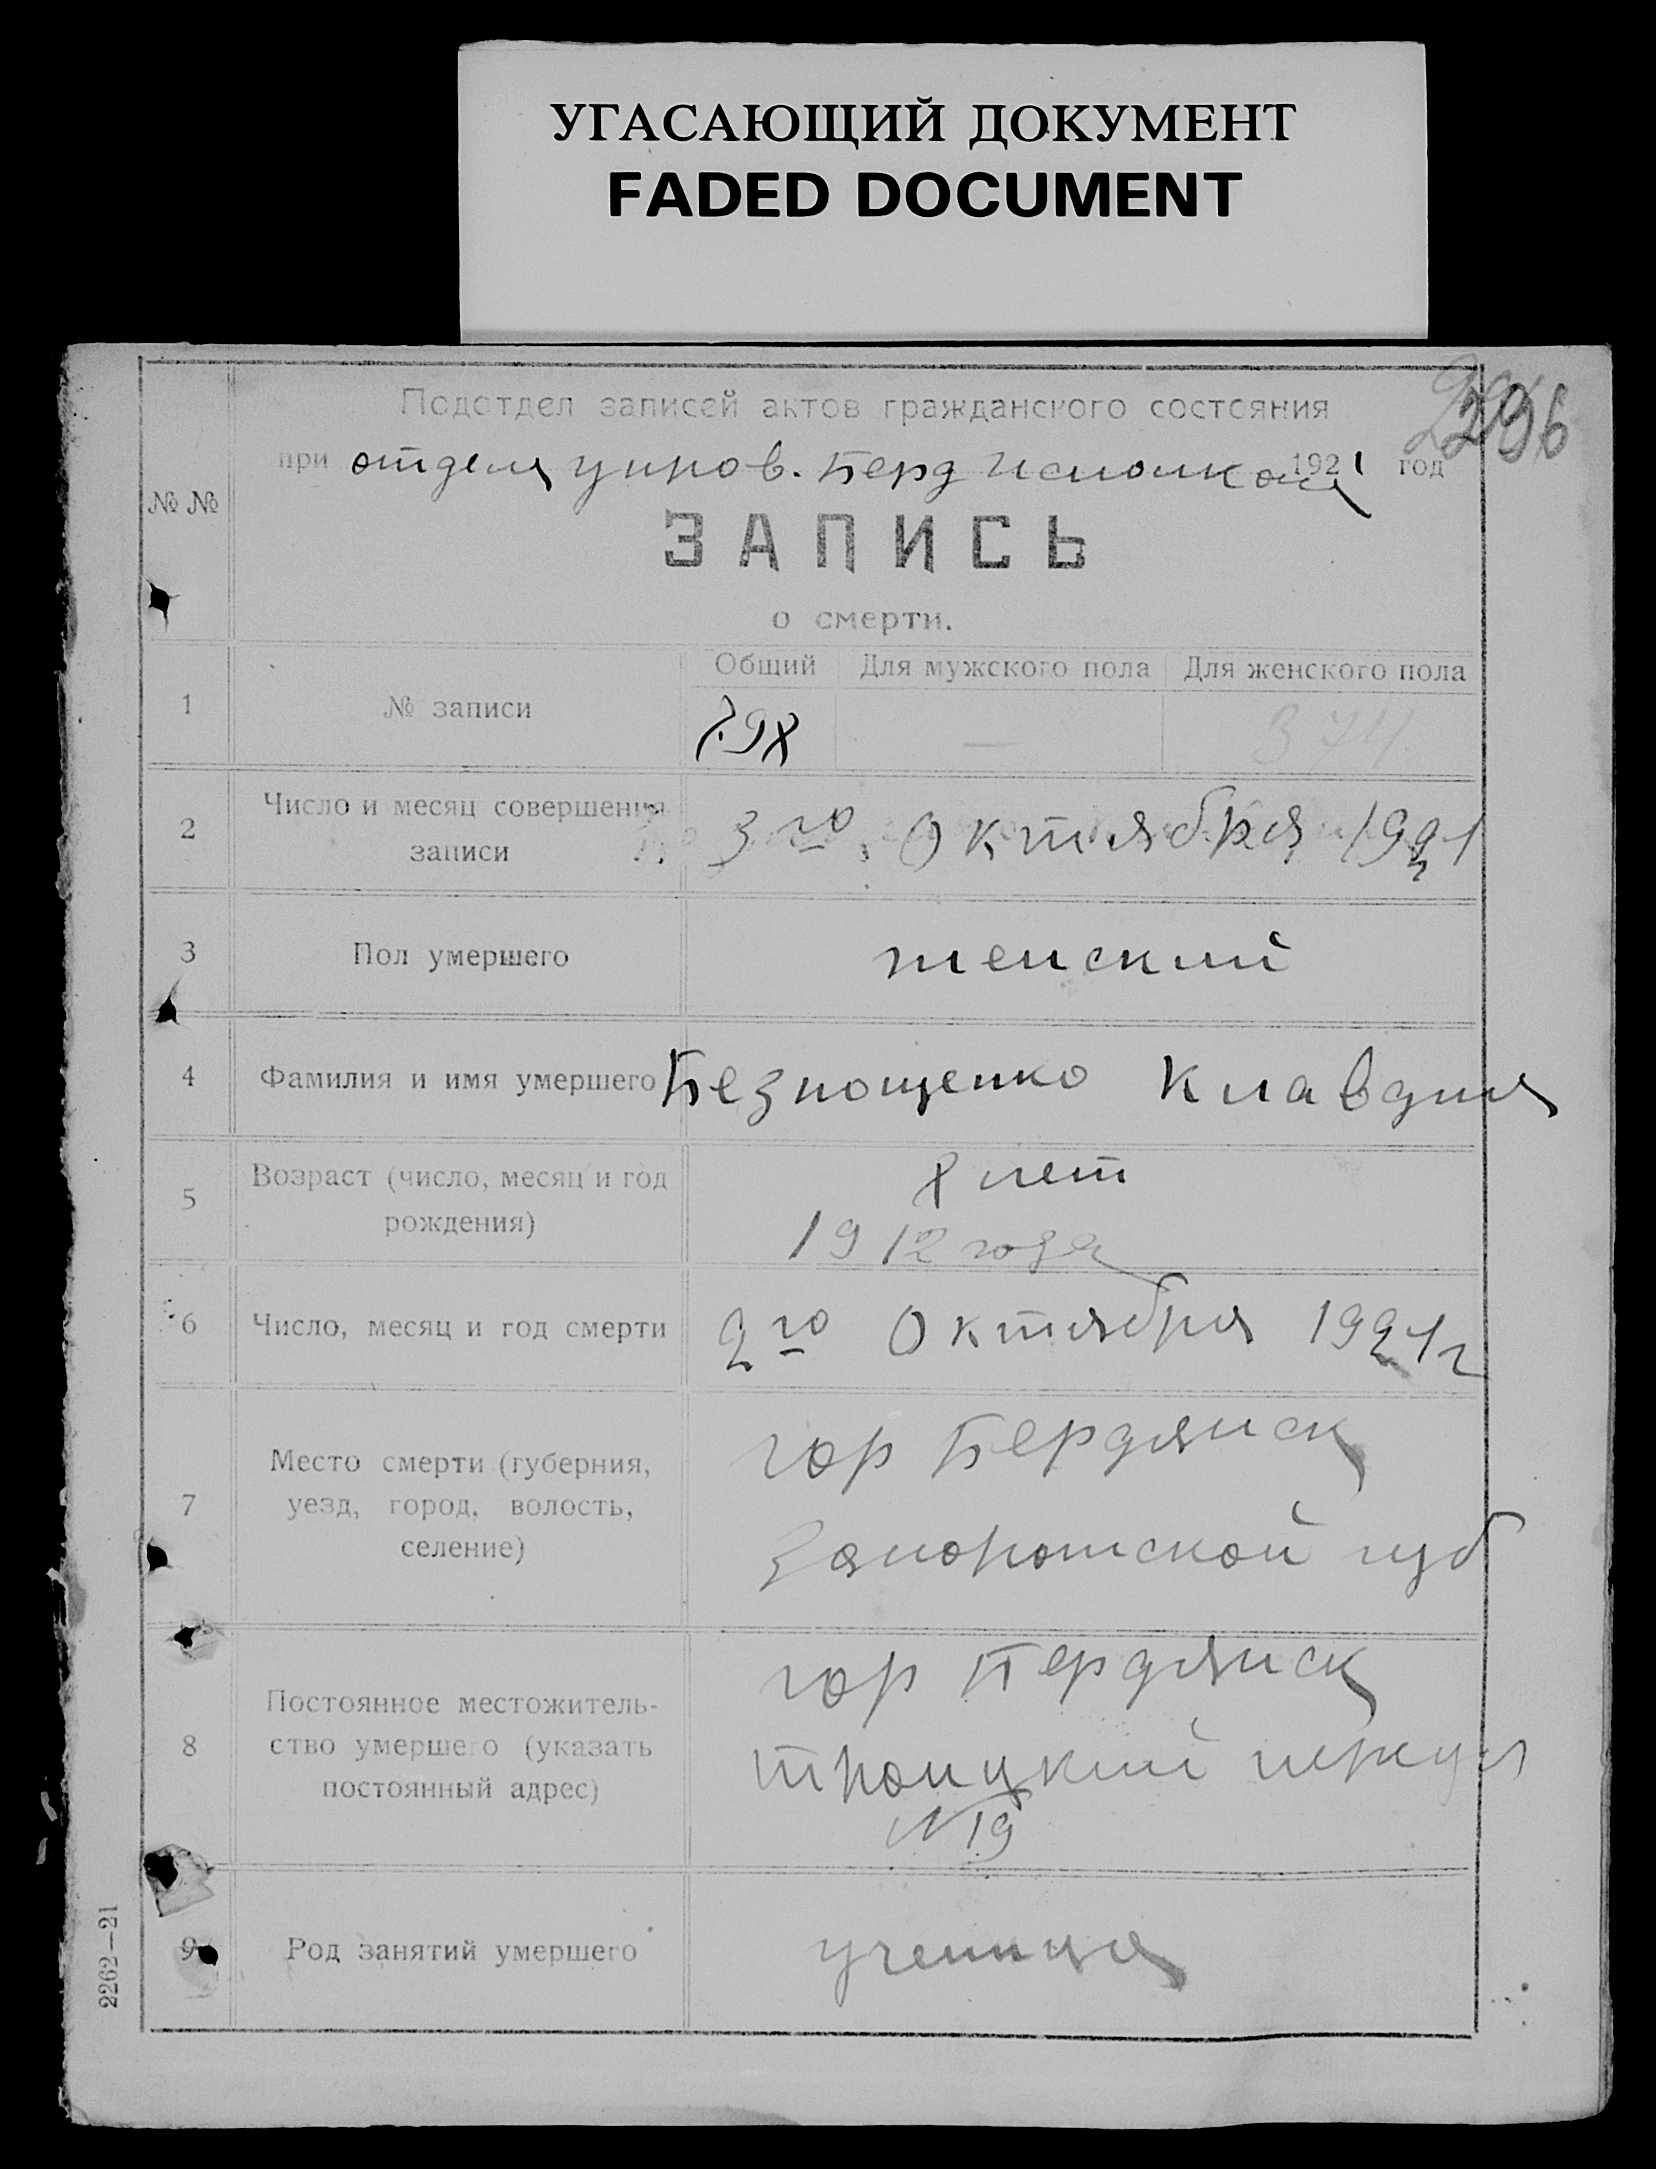 УГАСАЮЩИЙ ДОКУМЕНТ
FADED DOCUMENT
296
Подотдел записей актов гражданского состояния
при отделе управ. Берд Исполкома 1921 год
№ №
ЗАПИСЬ
о смерти.
Общий Для мужского пола Для женского пола
1 № записи 798 — 374
2 Число и месяц совершения
записи 3го Октября 1921
3 Пол умершего женский
4 Фамилия и имя умершего Безнощенко Клавдия
5 Возраст (число, месяц и год
рождения) 8 лет
1912 года
6 Число, месяц и год смерти 2го Октября 1921 г
7 Место смерти (губерния,
уезд, город, волость,
селение)
гор Бердянск
Запорожской губ
8 Постоянное местожитель-
ство умершего (указать
постоянный адрес)
гор Бердянск
Троицкий
N 19
9 Род занятий умершего ученица
2262—21